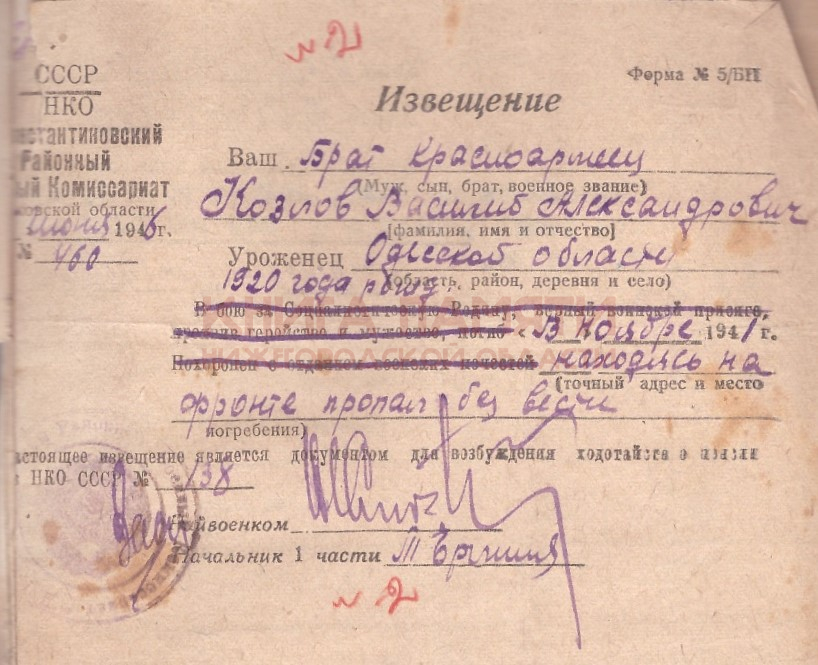 № 2
СССР
НКО
нстантиновский
Районный
ый Комиссариат
ковской области
июня 1946г.
№ 460
Форма № 5/БП
Извещение
Ваш Брат красноармеец
(Муж, сын, брат, военное звание)
Козлов Василий Александрович
[фамилия, имя и отчество]
Уроженец Одесской области
(область, район, деревня и село)
1920 года рожд.
В бою за Социалистическую Родину, верный воинской присяге,
проявив геройство и мужество, погиб « В Ноябре 1941 г.
НИЖЕГОРОДСКОЙ
Похоронен с отданием воинских почестей находясь на
(точный адрес и место
фронте пропал без вести
погребения)
астоящее извещение является документом для возбуждения ходотайств о пенсии
НКО СССР № 138
айвоенком
Начальник 1 части
№ 2